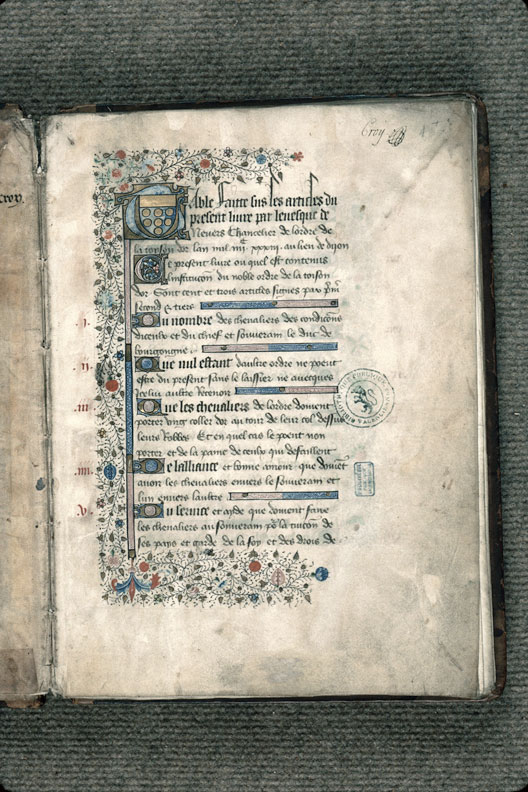 Croy
Table faicte sus les articles du
present liure par leuesque de
Neuers Chancelier de lordre de
la toison dor lan mil iiiic xxxiij au lieu de dijon
Ce present liure ou quel est contenus
linstitucion du noble ordre de la toison
dor Sont cent et trois articles signes par pm
second & tiers
.j. Du nombre des cheualiers des condicions
diceulx et du chief et souuerain le duc de
bourgongne
.ij. Que nul estant daultre ordre ne poeut
estre du present sans le laissier ne auecques
icelui aultre retenoir
.iij. Que les cheualiers de lordre doiuent
porter vng coller dor au tour de leur col dessus
leurs Robbes Et en quel cas le poent non
porter et de la paine de ceulx qui deffaillent
.iiij. De lalliance et bonne amour que doiuent
auoir les cheualiers enuers le souuerain et
lun enuers laultre
.v. Du seruice et ayde que doiuent faire
les cheualiers au souuerain po la tuicion de
ses pays et garde de la foy et des drois de
croy.